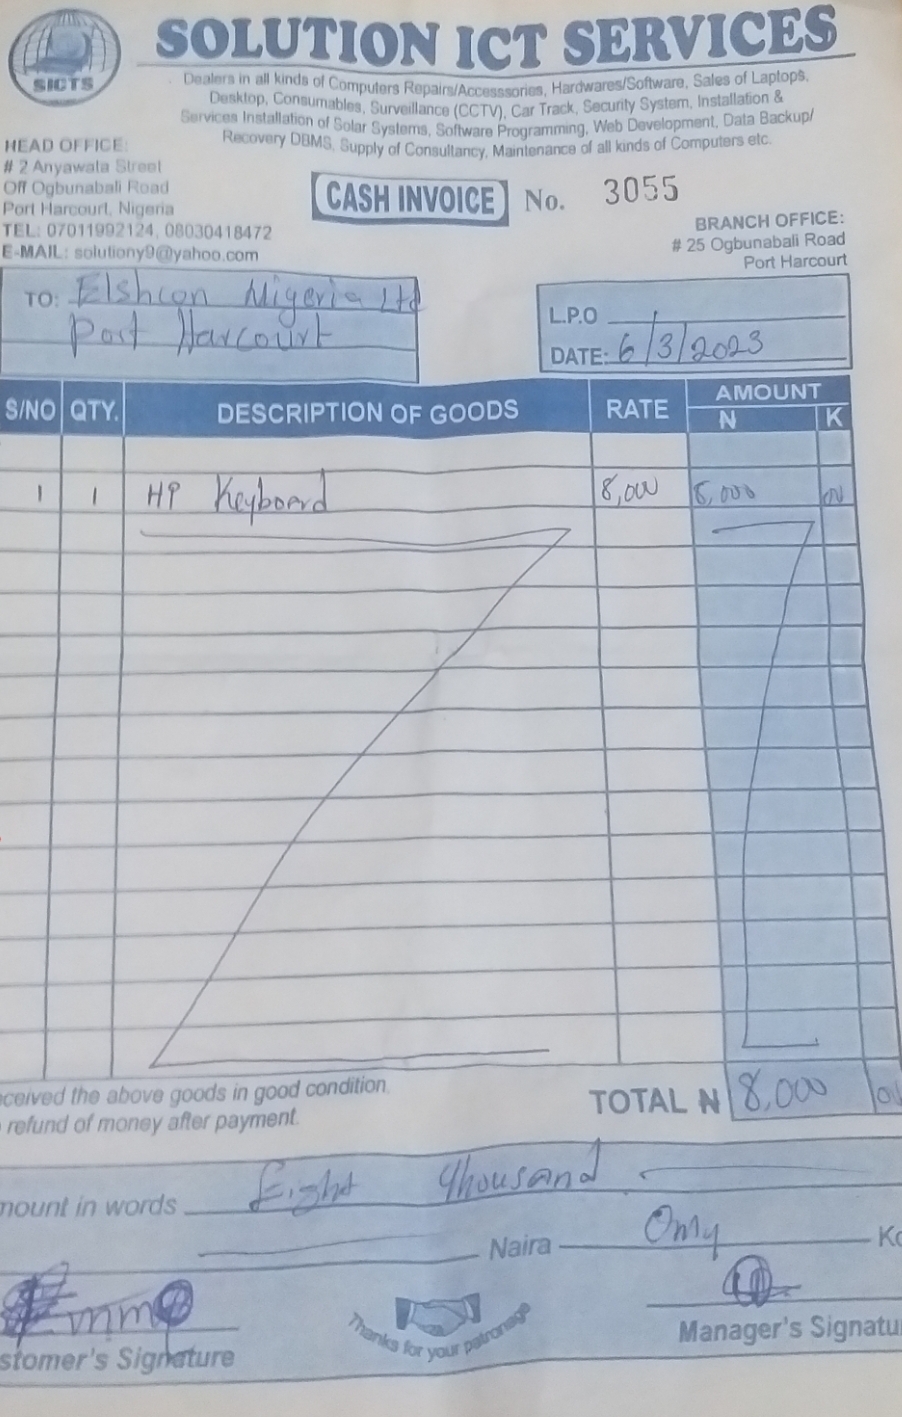 SICTS
SOLUTION ICT SERVICES
Dealers in all kinds of Computers Repairs/Accesssories, Hardwares/Software, Sales of Laptops,
Desktop, Consumables, Surveillance (CCTV), Car Track, Security System, Installation &
Services Installation of Solar Systems, Software Programming, Web Development, Data Backup/
Recovery DBMS, Supply of Consultancy, Maintenance of all kinds of Computers etc.
HEAD OFFICE:
# 2 Anyawala Street
Off Ogbunabali Road
Port Harcourt, Nigeria
TEL: 07011992124, 08030418472
E-MAIL: solutiony9@yahoo.com
CASH INVOICE No. 3055
BRANCH OFFICE:
# 25 Ogbunabali Road
Port Harcourt
TO: Elshcon Nigeria Ltd
Port Harcourt
L.P.O
DATE: 6/3/2023
S/NO QTY. DESCRIPTION OF GOODS RATE AMOUNT
N K
1 1 HP Keyboard 8,000 8,000 00
ceived the above goods in good condition.
refund of money after payment.
TOTAL N 8,000 00
mount in words Eight thousand
Naira Only Ko
stomer's Signature
Thanks for your patronage
Manager's Signatu